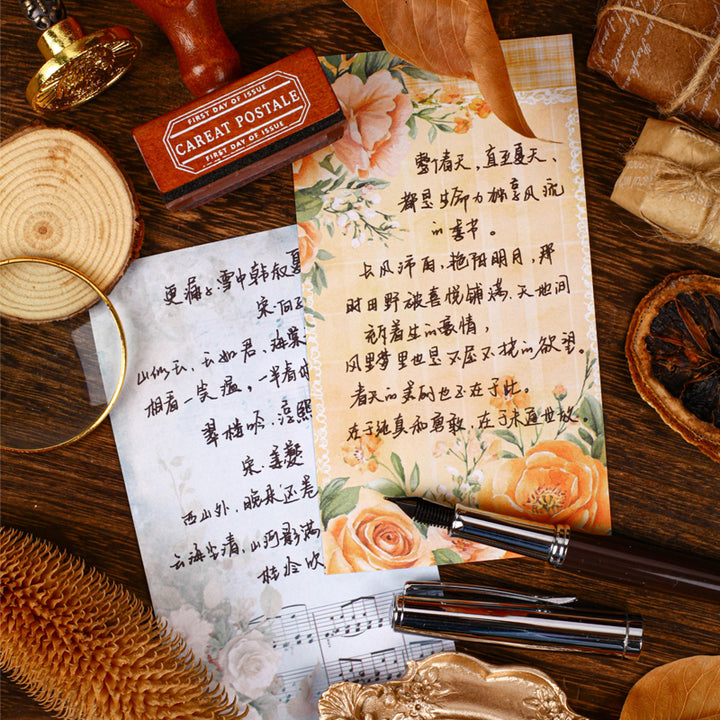 FIRST DAY OF ISSUE
CAREAT POSTALE
FIRST DAY OF ISSUE
整个春天，直至夏天、
都是生命力独享风流
的季节。
长风沛雨，艳阳明月，那
时田野被喜悦铺满，天地间
着生的豪情，
风里梦里也是不屈不挠的欲望。
春天的美丽也正在于此。
在于纯真和勇敢，在于未通世故。
更漏子·雪中韩叔夏
宋·向子
山似玉，玉如君，
相看一笑温，一半春
翠楼吟·淳熙
宋·姜夔
西山外，晚来还卷
云海尘清，山河影满
桂冷吹